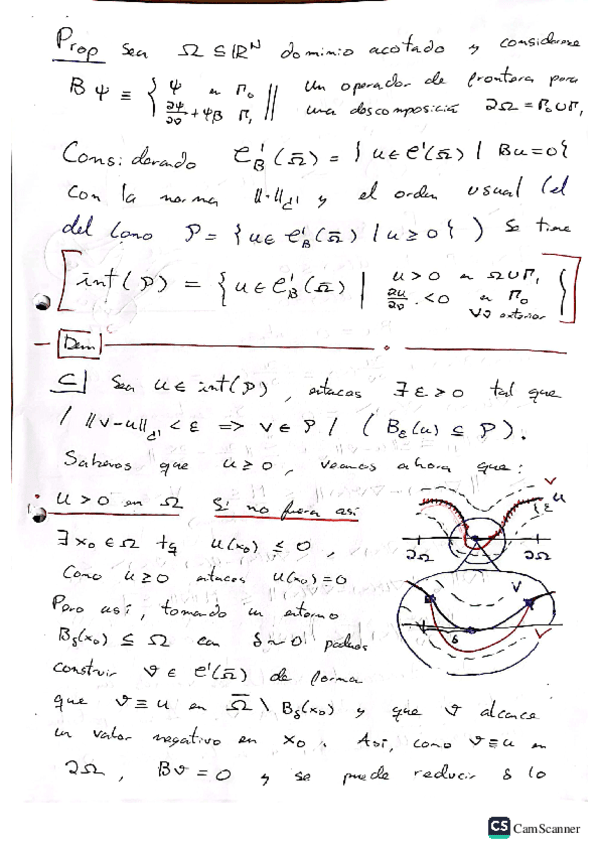 Prop Sea Ω ⊆ ℝᴺ dominio acotado y considerese
Bψ ≡ { ψ en Γ₀ ; ∂ψ/∂ν + ψβ Γ₁ || un operador de frontera para
una descomposición ∂Ω = Γ₀ ∪ Γ₁
Considerando C¹_B(Ω̄) = { u ∈ C¹(Ω̄) | Bu=0 }
con la norma ||·||_{C¹} y el orden usual (el
del cono P = { u ∈ C¹_B(Ω̄) / u ≥ 0 } ) se tiene
int(P) = { u ∈ C¹_B(Ω̄) | u > 0 en Ω∪Γ₁ ; ∂u/∂ν < 0 en Γ₀ ∀ν exterior }
Dem
⊆| Sea u ∈ int(P), entonces ∃ ε > 0 tal que
/ ||v-u||_{C¹} < ε ⇒ v ∈ P / ( B_ε(u) ⊆ P ).
Sabemos que u ≥ 0, veamos ahora que:
• u > 0 en Ω Si no fuera así
∃ x₀ ∈ Ω tq u(x₀) ≤ 0,
Como u ≥ 0 entonces u(x₀) = 0
Pero así, tomando un entorno
B_δ(x₀) ⊆ Ω con δ ~ 0 podemos
construir v ∈ C¹(Ω̄) de forma
que v ≡ u en Ω̄ \ B_δ(x₀) y que v alcance
un valor negativo en x₀. Así, como v ≡ u en
∂Ω, Bv = 0 y se puede reducir δ lo
u
ε
∂Ω
∂Ω
v
δ
CS CamScanner